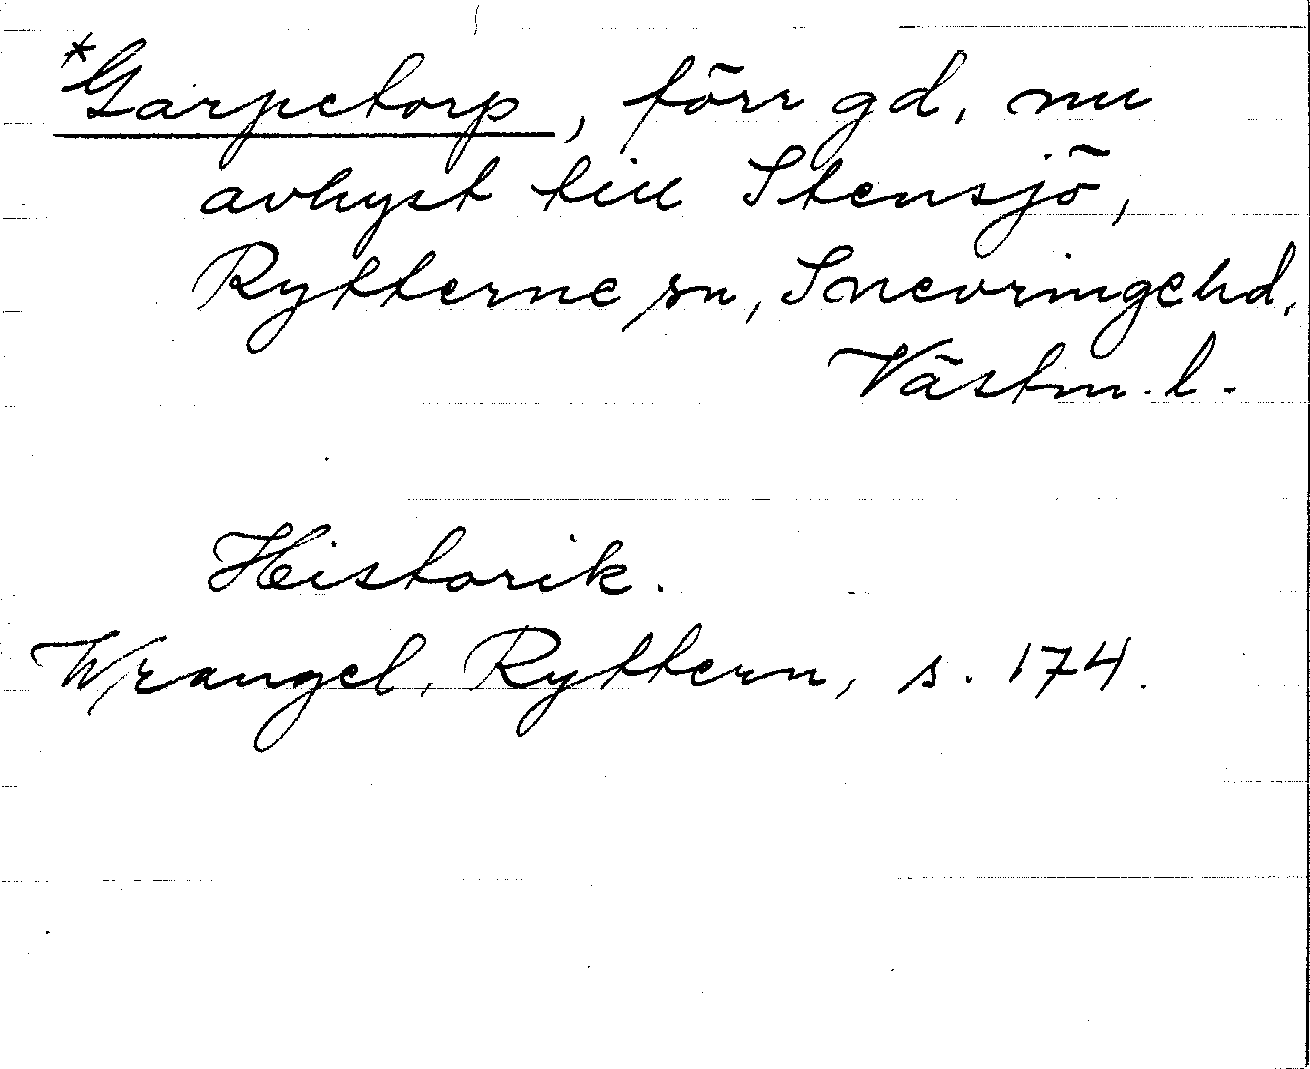 *Garpetorp, förr gd, nu
avhyst till Stensjö,
Rytterne sn, Snevringe hd,
Västm. l.
Historik.
Wrangel, Ryttern, s. 174.